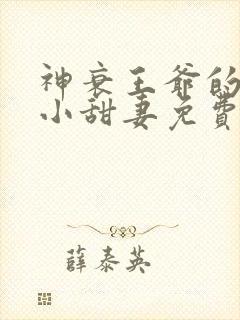 神衰王爷的
小甜妻免費
薛泰英